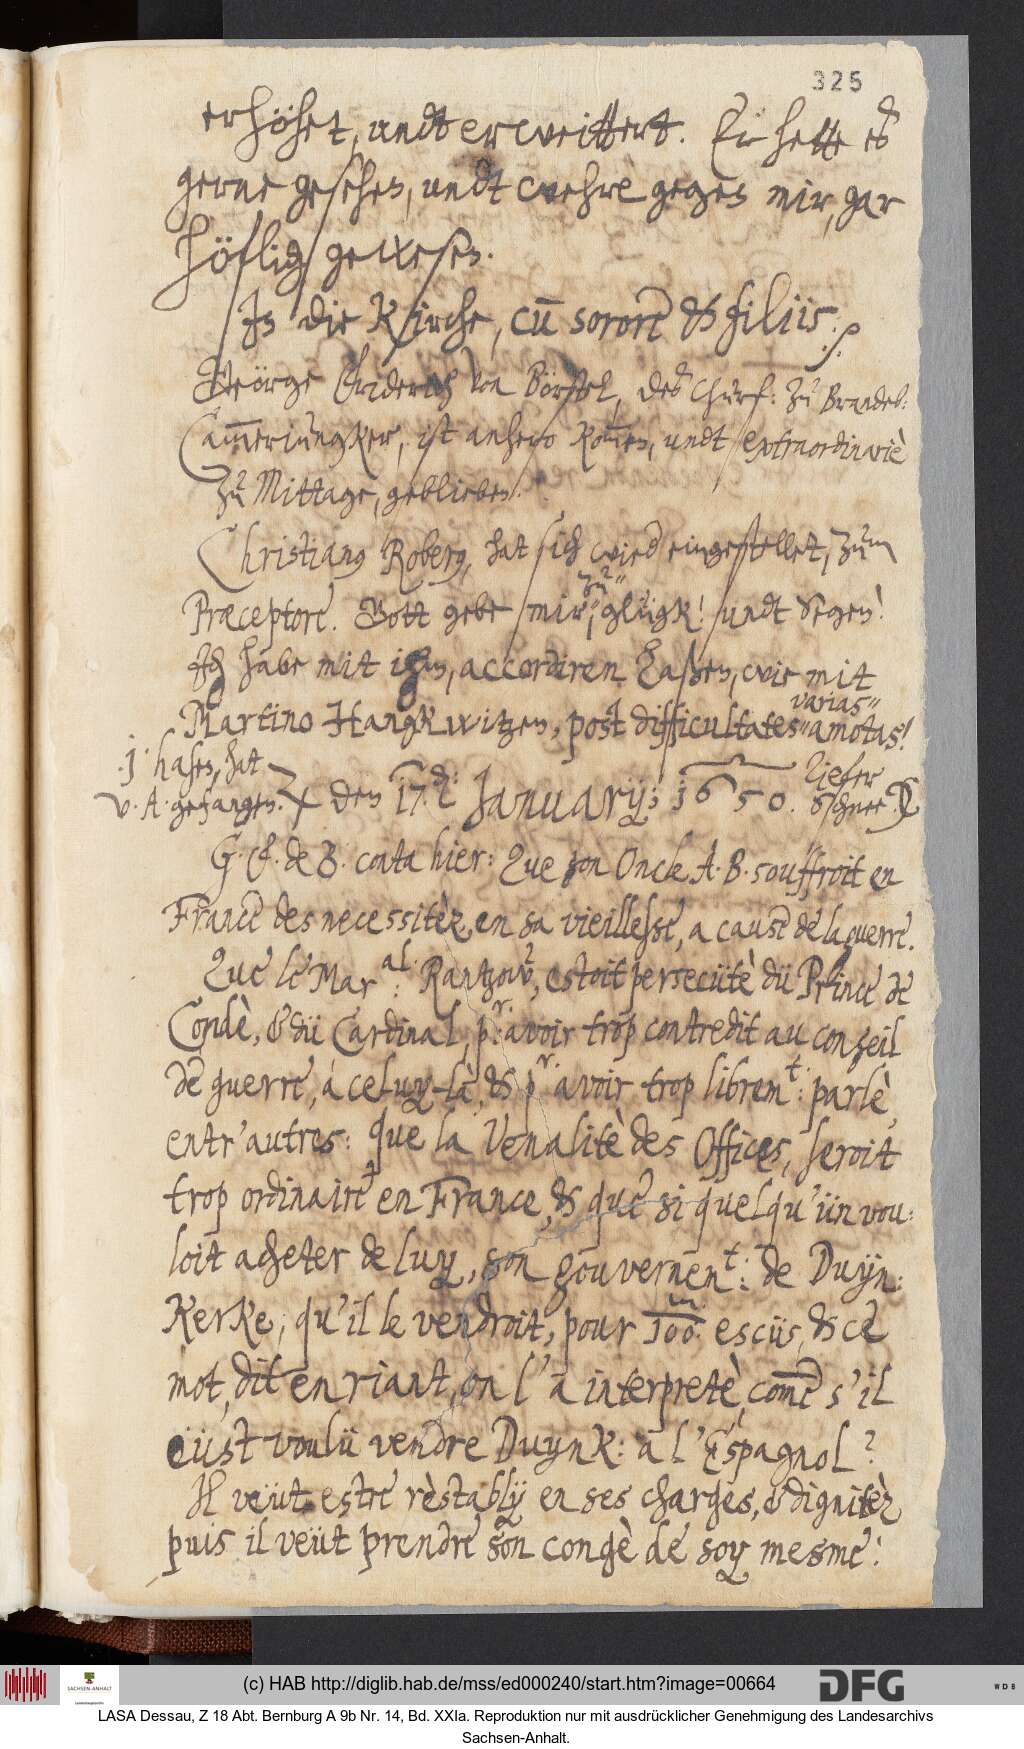 325
erhöhet, undt erweittert. Er hette es
gerne gesehen, undt wehre gegen mir, gar
höflig gewesen.
In die Kirche, cum sorore & filiis. /.
Geörge Friderich von Börstel, des Churf: zu Brandeb:
Cammeriungker, ist anhero kommen, undt extraordinariè
zu Mittage, geblieben.
Christianus Roberg, hat sich wied eingestellet, zum
Præceptore. Gott gebe mir, zu" glügk! undt Segen!
Ich habe mit ihm, accordiren laßen, wie mit
Martino Hangkwitzen, post difficultates" varias" amotas!
.j. hasen, hat
v. A. gefangen. den 17.d: Januarij; 1650. Tiefer Schnee. ☽
G. F. de B. conta hier: Que son Oncle A. B. souffroit en
France des necessitèz, en sa vieillesse, a cause de la guerre.
Que le Mar al: Rantzow, estoit persecütè dü Prince de
Condè, & dü Cardinal, pr: avoir trop contredit au conseil
de guerre, a celuy-là, & pr avoir trop librem t: parlè,
entr'autres: que la Venalitè des Offices, seroit
trop ordinaire en France, & que si quelqu'ün vou:
loit acheter de luy, son gouvernen t: de Duyn:
Kerke, qu'il le vendroit, pour 100 m. escüs, & ce
mot, dit en riant, on l'a interpretè, comme s'il
eüst voulü vendre Duynk: à l'Espagnol?
Il veüt estre rèstably en ses charges, & dignitèz
puis il veüt prendre son congè de soy mesme!
(c) HAB http://diglib.hab.de/mss/ed000240/start.htm?image=00664
SACHSEN-ANHALT
DFG
WDB
LASA Dessau, Z 18 Abt. Bernburg A 9b Nr. 14, Bd. XXIa. Reproduktion nur mit ausdrücklicher Genehmigung des Landesarchivs
Sachsen-Anhalt.